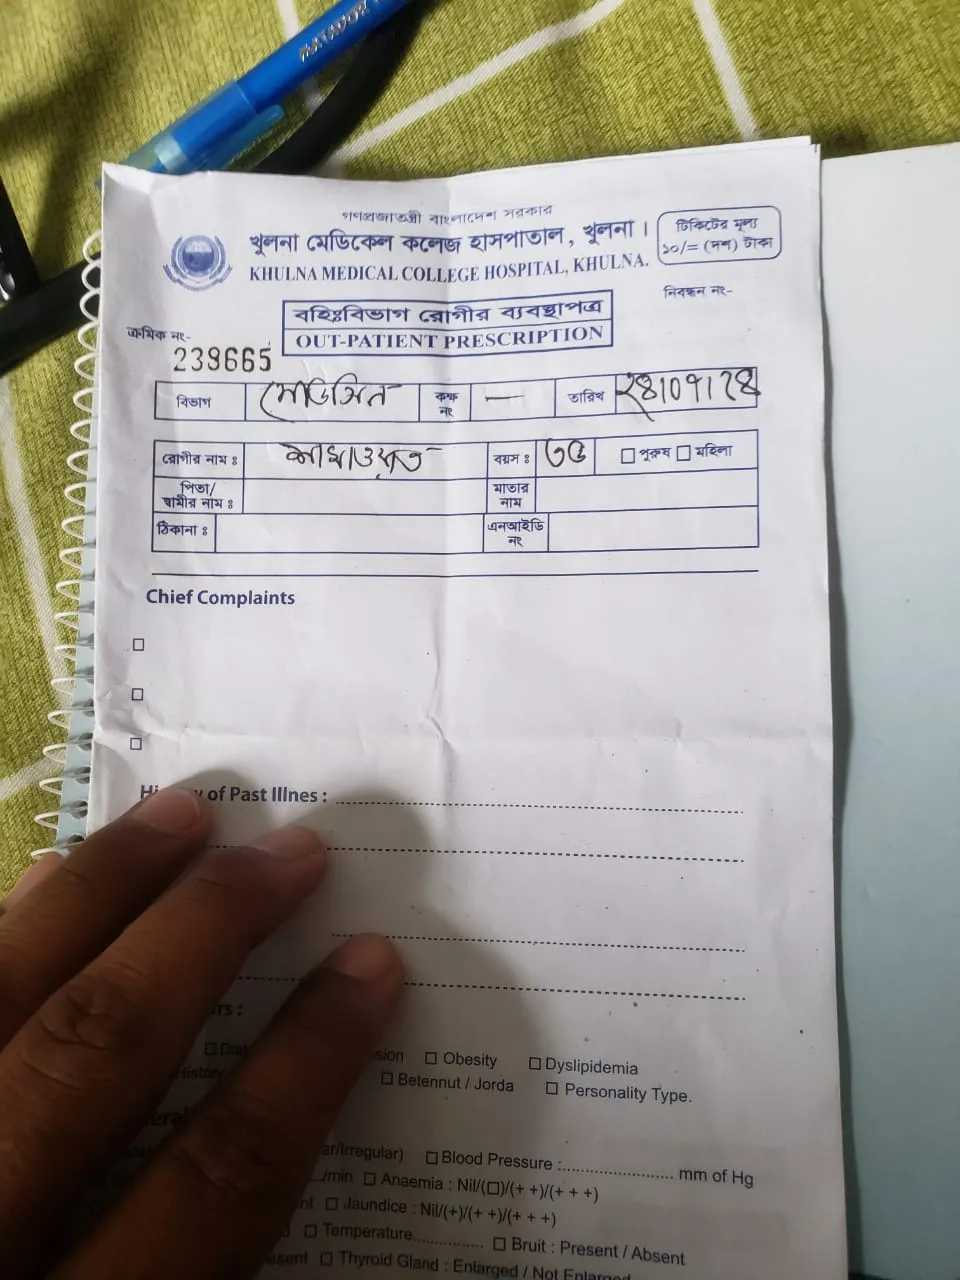 MATADOR
গণপ্রজাতন্ত্রী বাংলাদেশ সরকার
খুলনা মেডিকেল কলেজ হাসপাতাল, খুলনা।
KHULNA MEDICAL COLLEGE HOSPITAL, KHULNA.
টিকিটের মূল্য
১০/= (দশ) টাকা
নিবন্ধন নং-
বহিঃবিভাগ রোগীর ব্যবস্থাপত্র
OUT-PATIENT PRESCRIPTION
ক্রমিক নং-
239665
বিভাগ মেডিসিন কক্ষ নং — তারিখ ২৪।০৭।২৪
রোগীর নাম ঃ সাখাওয়াত বয়স ঃ ৩৫ □ পুরুষ □ মহিলা
পিতা/স্বামীর নাম ঃ মাতার নাম
ঠিকানা ঃ এনআইডি নং
Chief Complaints
of Past Illnes :
□ Obesity □ Dyslipidemia
□ Betennut / Jorda □ Personality Type.
/Irregular) □ Blood Pressure :...................... mm of Hg
/min □ Anaemia : Nil/(□)/(+ +)/(+ + +)
□ Jaundice : Nil/(+)/(+ +)/(+ + +)
□ Temperature............... □ Bruit : Present / Absent
□ Thyroid Gland : Enlarged / Not Enlarged